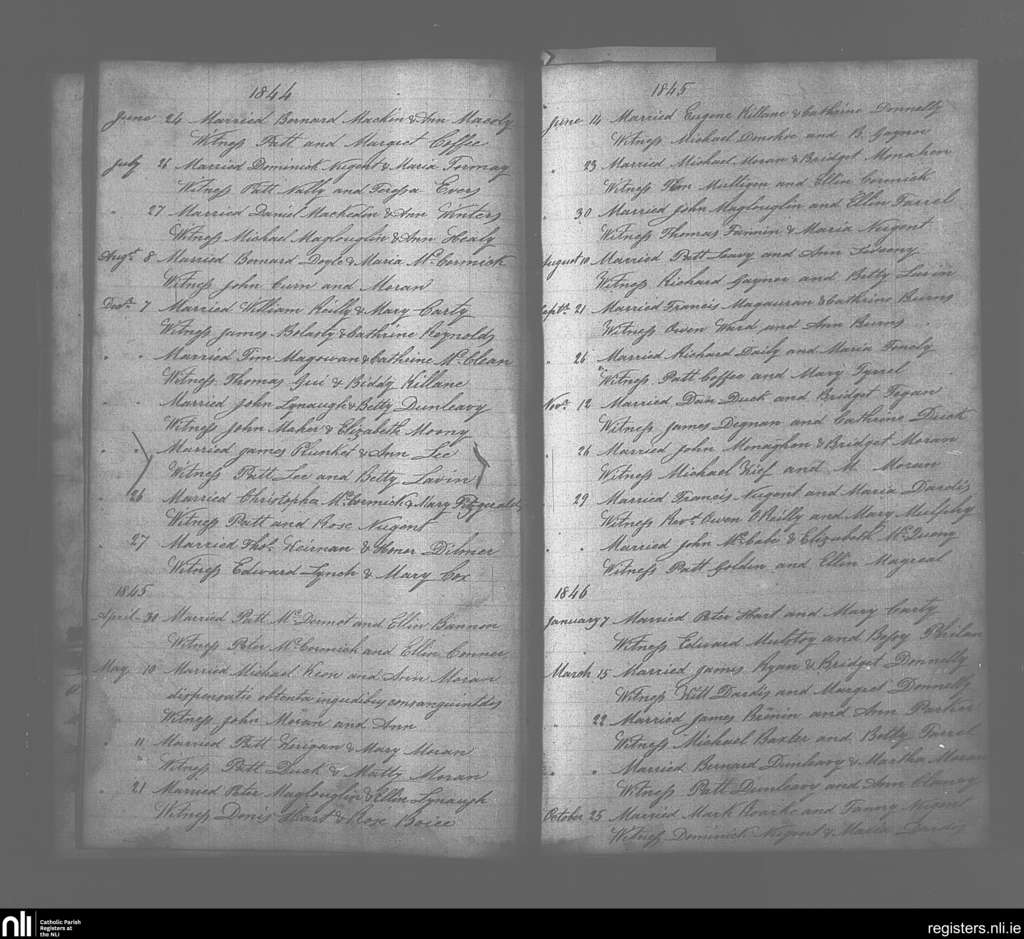 1844
June 24 Married Bernard Mackin & Ann
Witness Patt and Margret Coffee
July 21 Married Dominick Nugent & Maria Tormay
Witness Patt Nally and Teressa Evers
" 27 Married Daniel & Ann Winters
Witness Michael Maglouglin & Ann Healy
Augt. 8 Married Bernard Doyle & Maria McCormick
Witness John Curn and Moran
7 Married William Reilly & Mary Carty
Witness James & Cathrine Reynolds
" " Married Tim Magowan & Cathrine McClean
Witness Thomas & Biddy Killane
" " Married John Lynaugh & Betty Dunleavy
Witness John Maher & Elizabeth Moony
" " Married James Plunket & Ann Lee
Witness Patt Lee and Betty Lavin
" 26 Married Christopher McCormick & Mary Fitzgerald
Witness Patt and Rose Nugent
" 27 Married Thos. Keirnan & Dilmer
Witness Edward Lynch & Mary Cox
1845
April 30 Married Patt McDermot and Ellin Bannon
Witness Peter McCormick and Ellin Conner
May 10 Married Michael Keon and Ann Moran
dispensatio obtenta
Witness John Moran and Ann
" 11 Married Patt & Mary Moran
Witness Patt Duck & Matty Moran
" 21 Married Peter Maglouglin & Ellin Lynaugh
Witness Denis Hart & Rose Boice
1845
June 14 Married Eugene Killane & Cathrine Donnelly
Witness Michael Donohoe and B. Gaynor
" 23 Married Michael Moran & Bridget Monahan
Witness Thos Mulligan and Ellin Cormick
" 30 Married John Maglouglin and Ellin Farrel
Witness Thomas Fannin & Maria Nugent
August 10 Married Patt Leavy and Ann
Witness Richard Gaynor and Betty Lavin
Septr. 21 Married Francis Magauran & Cathrine Burns
Witness Owen Ward and Ann Burns
" 26 Married Richard Daily and Maria
Witness Patt Coffee and Mary Tyrrel
Novr. 12 Married Dan Duck and Bridget Fegan
Witness James Degnan and Cathrine Duck
" 26 Married John Monaghan & Bridget Moran
Witness Michael Kief and M Moran
" 29 Married Francis Nugent and Maria Dardis
Witness Revt. Owen O'Reilly and Mary Mulphy
" " Married John McCabe & Elizabeth
Witness Patt Goldin and Ellin Magreal
1846
January 7 Married Peter Hart and Mary Carty
Witness Edward and Bessy Phelan
March 15 Married James Ryan & Bridget Donnelly
Witness Will Dardis and Margret Donnelly
" 22 Married James and Ann Parker
Witness Michael Baxter and Betty Farrel
" " Married Bernard Dunleavy & Martha Moran
Witness Patt Dunleavy and Ann
October 25 Married Mark Roarke and Fanny Nugent
Witness Dominick Nugent & Maria Dardis
nli
Catholic Parish
Registers at
the NLI
registers.nli.ie